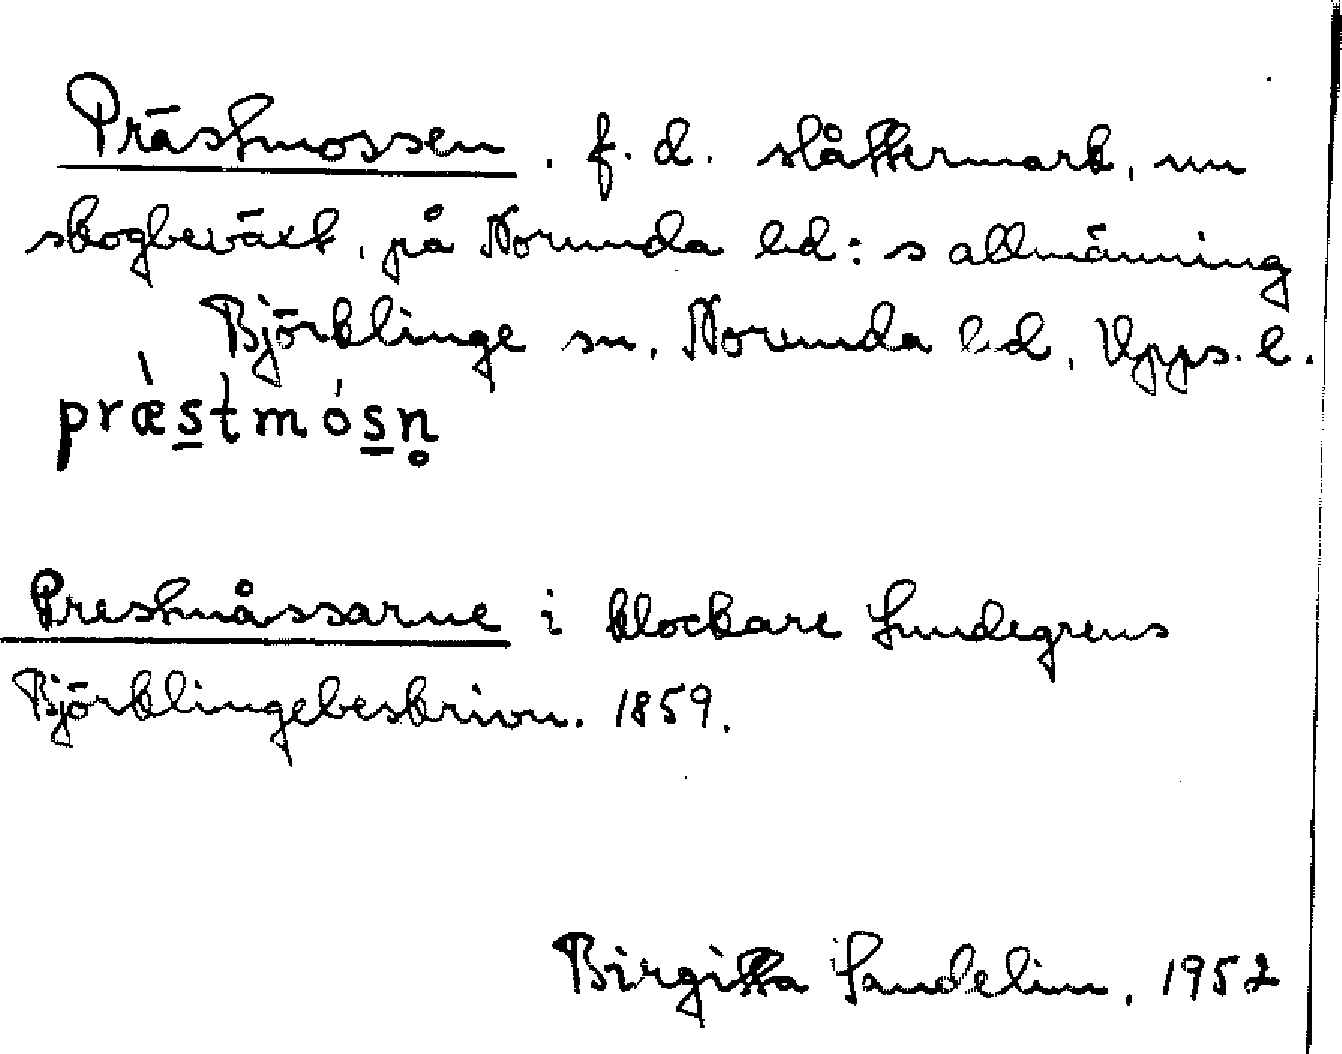 Prästmossen. f.d. slåttermark, nu
skogbeväxt, på Norunda hd:s allmänning
Björklinge sn, Norunda hd, Upps. l.
præ̀stmósn̥
Prestmåssarne i klockare Lundegrens
Björklingebeskrivn. 1859.
Birgitta Sandelin, 1952